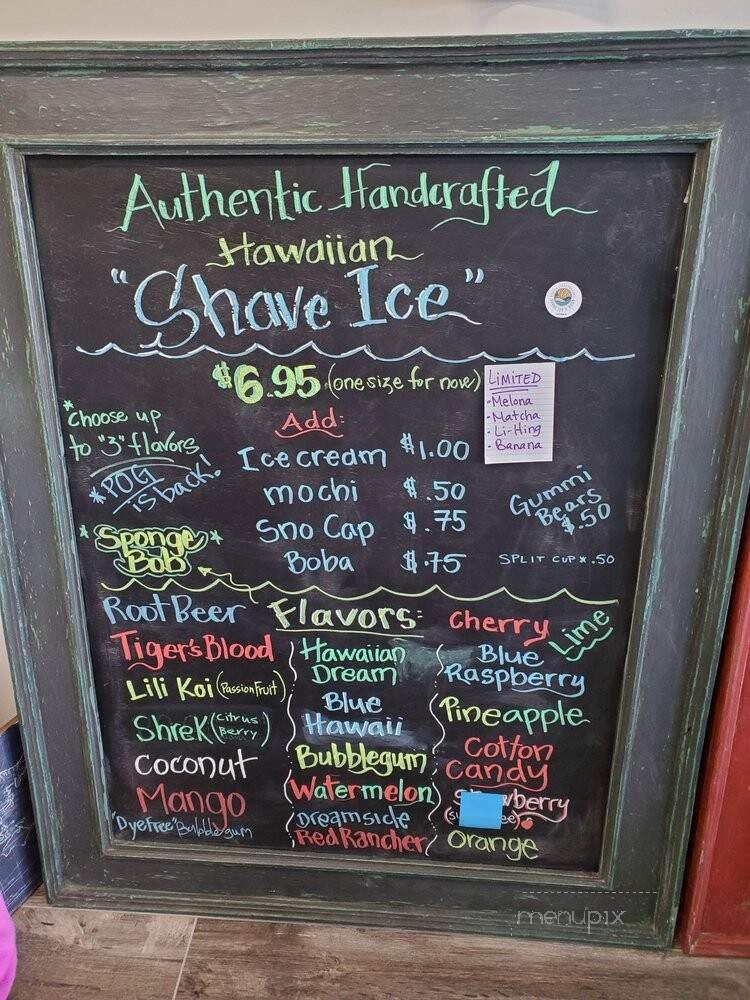 Authentic Handcrafted
Hawaiian
"Shave Ice"
$6.95 (one size for now)
LIMITED
-Melona
-Matcha
-Li-Hing
-Banana
*choose up
to "3" flavors
*POG
is back!
*Sponge*
Bob
Add:
Ice cream $1.00
mochi $.50
Sno Cap $.75
Boba $.75
Gummi
Bears
$.50
SPLIT CUP * .50
Flavors:
Root Beer
Tiger's Blood
Lili Koi (Passion Fruit)
Shrek (Citrus
Berry)
Coconut
Mango
"Dye Free" Bubblegum
Hawaiian
Dream
Blue
Hawaii
Bubblegum
Watermelon
Dreamsicle
Red Rancher
Cherry
Lime
Blue
Raspberry
Pineapple
Cotton
Candy
Orange
menupix